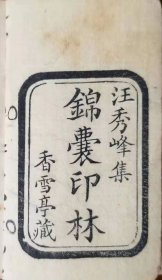 汪秀峰集
錦囊印林
香雪亭藏